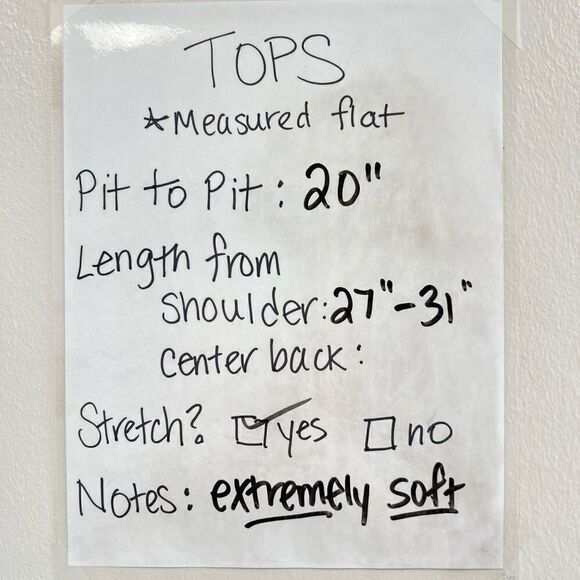 TOPS
*Measured flat
Pit to Pit: 20"
Length from
shoulder: 27"-31"
center back:
Stretch? ☑ yes ☐ no
Notes: extremely soft